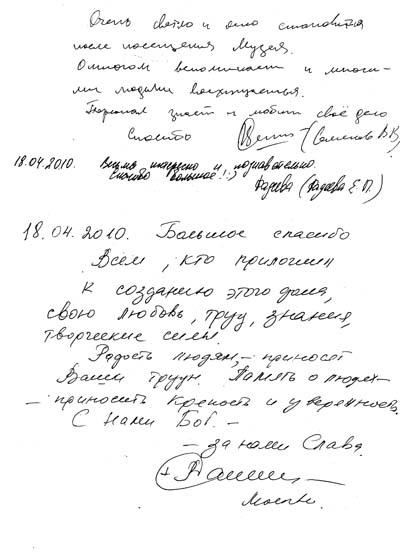 Очень светло и ясно становится
после посещения Музея.
О многом вспоминает и многи-
ми людьми восхищаешься.
Персонал знает и любит своё дело
Спасибо (Семенова В.В.)
18.04.2010. Весьма интересно и познавательно.
Спасибо большое! :)
Фадеева (Фадеева Е.П.)
18.04.2010. Большое спасибо
Всем, кто приложил
к созданию этого дома,
свою любовь, труд, знания,
творческие силы.
Радость людям, – приносят
Ваши труды. Память о людях –
– приносить крепость и уверенность.
С Нами Бог. –
– за нами Слава.
Москва.